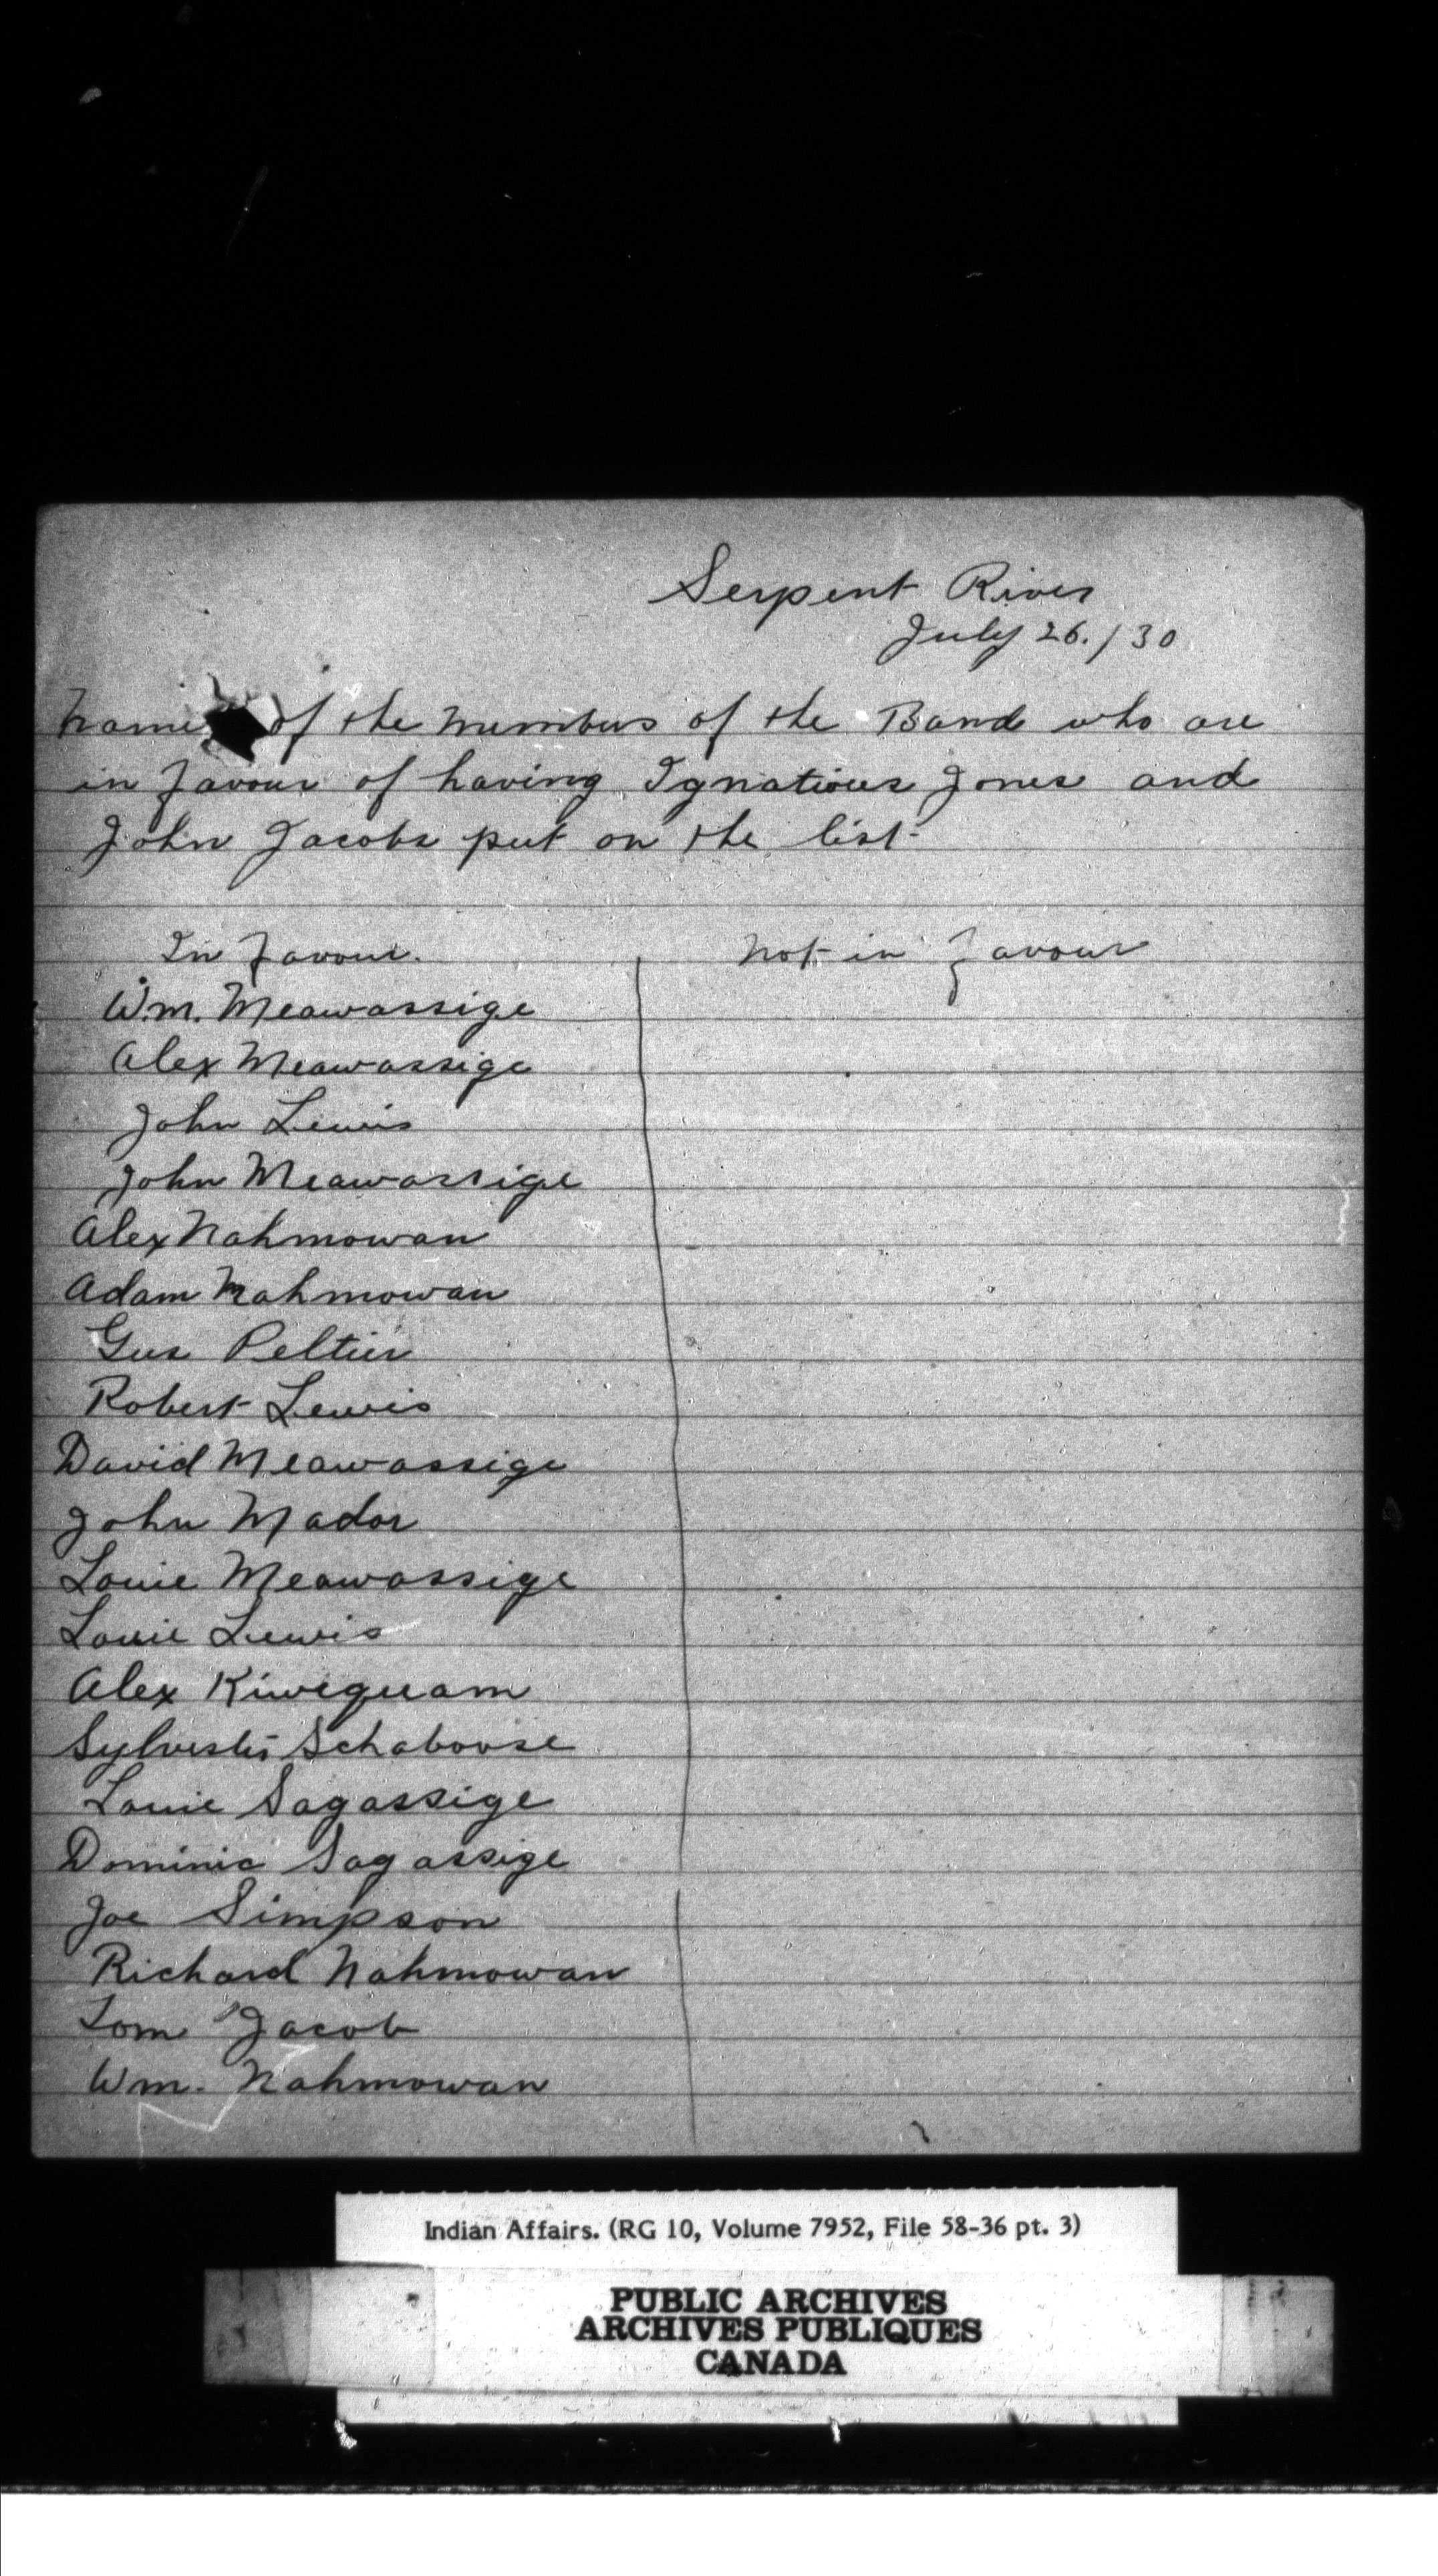 Serpent River
July 26./30
Name of the members of the Band who are
in favour of having Ignatious Jones and
John Jacobs put on the list
In favour.
Not in favour
Wm. Meawassige
Alex Meawassige
John Lewis
John Meawassige
Alex Nahmowan
Adam Nahmowan
Gus Peltier
Robert Lewis
David Meawassige
John Mador
Louie Meawassige
Louie Lewis
Alex Kiwequam
Sylvester Schaboose
Louie Sagassige
Dominic Sagassige
Joe Simpson
Richard Nahmowan
Tom Jacob
Wm. Nahmowan
Indian Affairs. (RG 10, Volume 7952, File 58-36 pt. 3)
PUBLIC ARCHIVES
ARCHIVES PUBLIQUES
CANADA